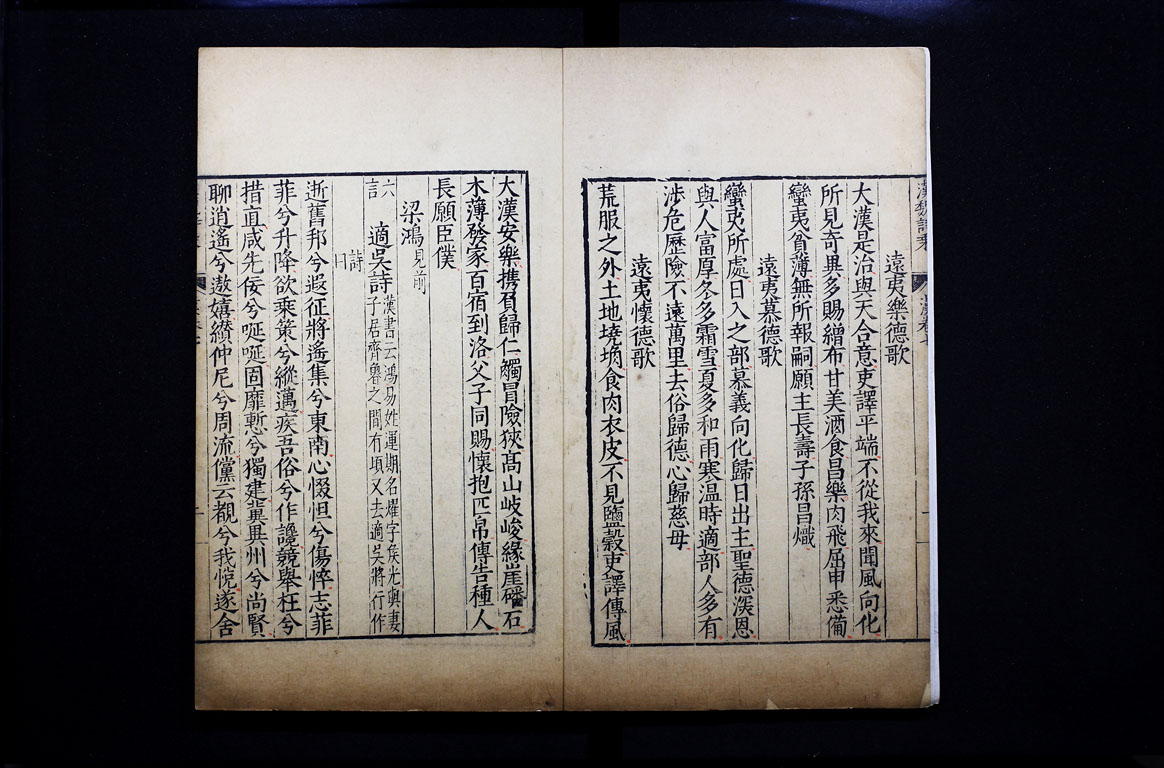 遠夷樂德歌
大漢是治與天合意吏譯平端不從我來聞風向化
所見奇異多賜繒布甘美酒食昌樂肉飛屈申悉備
蠻夷貧薄無所報嗣願主長壽子孫昌熾
遠夷慕德歌
蠻夷所處日入之部慕義向化歸日出主聖德深恩
與人富厚冬多霜雪夏多和雨寒温時適部人多有
涉危歷險不遠萬里去俗歸德心歸慈母
遠夷懷德歌
荒服之外土地墝埆食肉衣皮不見鹽穀吏譯傳風
大漢安樂携負歸仁觸冒險狹髙山岐峻緣崖磻石
木薄發家百宿到洛父子同賜懷抱匹帛傳告種人
長願臣僕
梁鴻見前
適吳詩漢書云鴻易姓運期名燿字侯光與妻
子居齊魯之間有頃又去適吳將行作
詩曰
逝舊邦兮遐征將遙集兮東南心惙怛兮傷悴志菲
菲兮升降欲乘策兮縱邁疾吾俗兮作讒競舉枉兮
措直咸先佞兮唌唌固靡慙兮獨建冀異州兮尚賢
聊逍遙兮遨嬉纘仲尼兮周流儻云覩兮我悅遂舍
六言